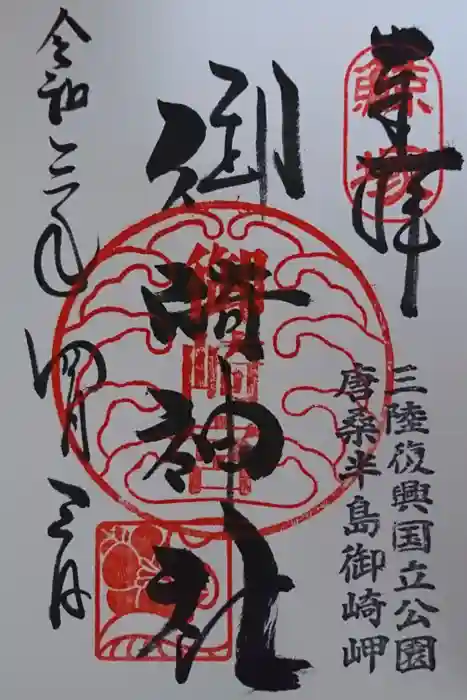 奉拝
鯨塚
三陸復興国立公園
唐桑半島御崎岬
御崎神社
令和三年四月三日